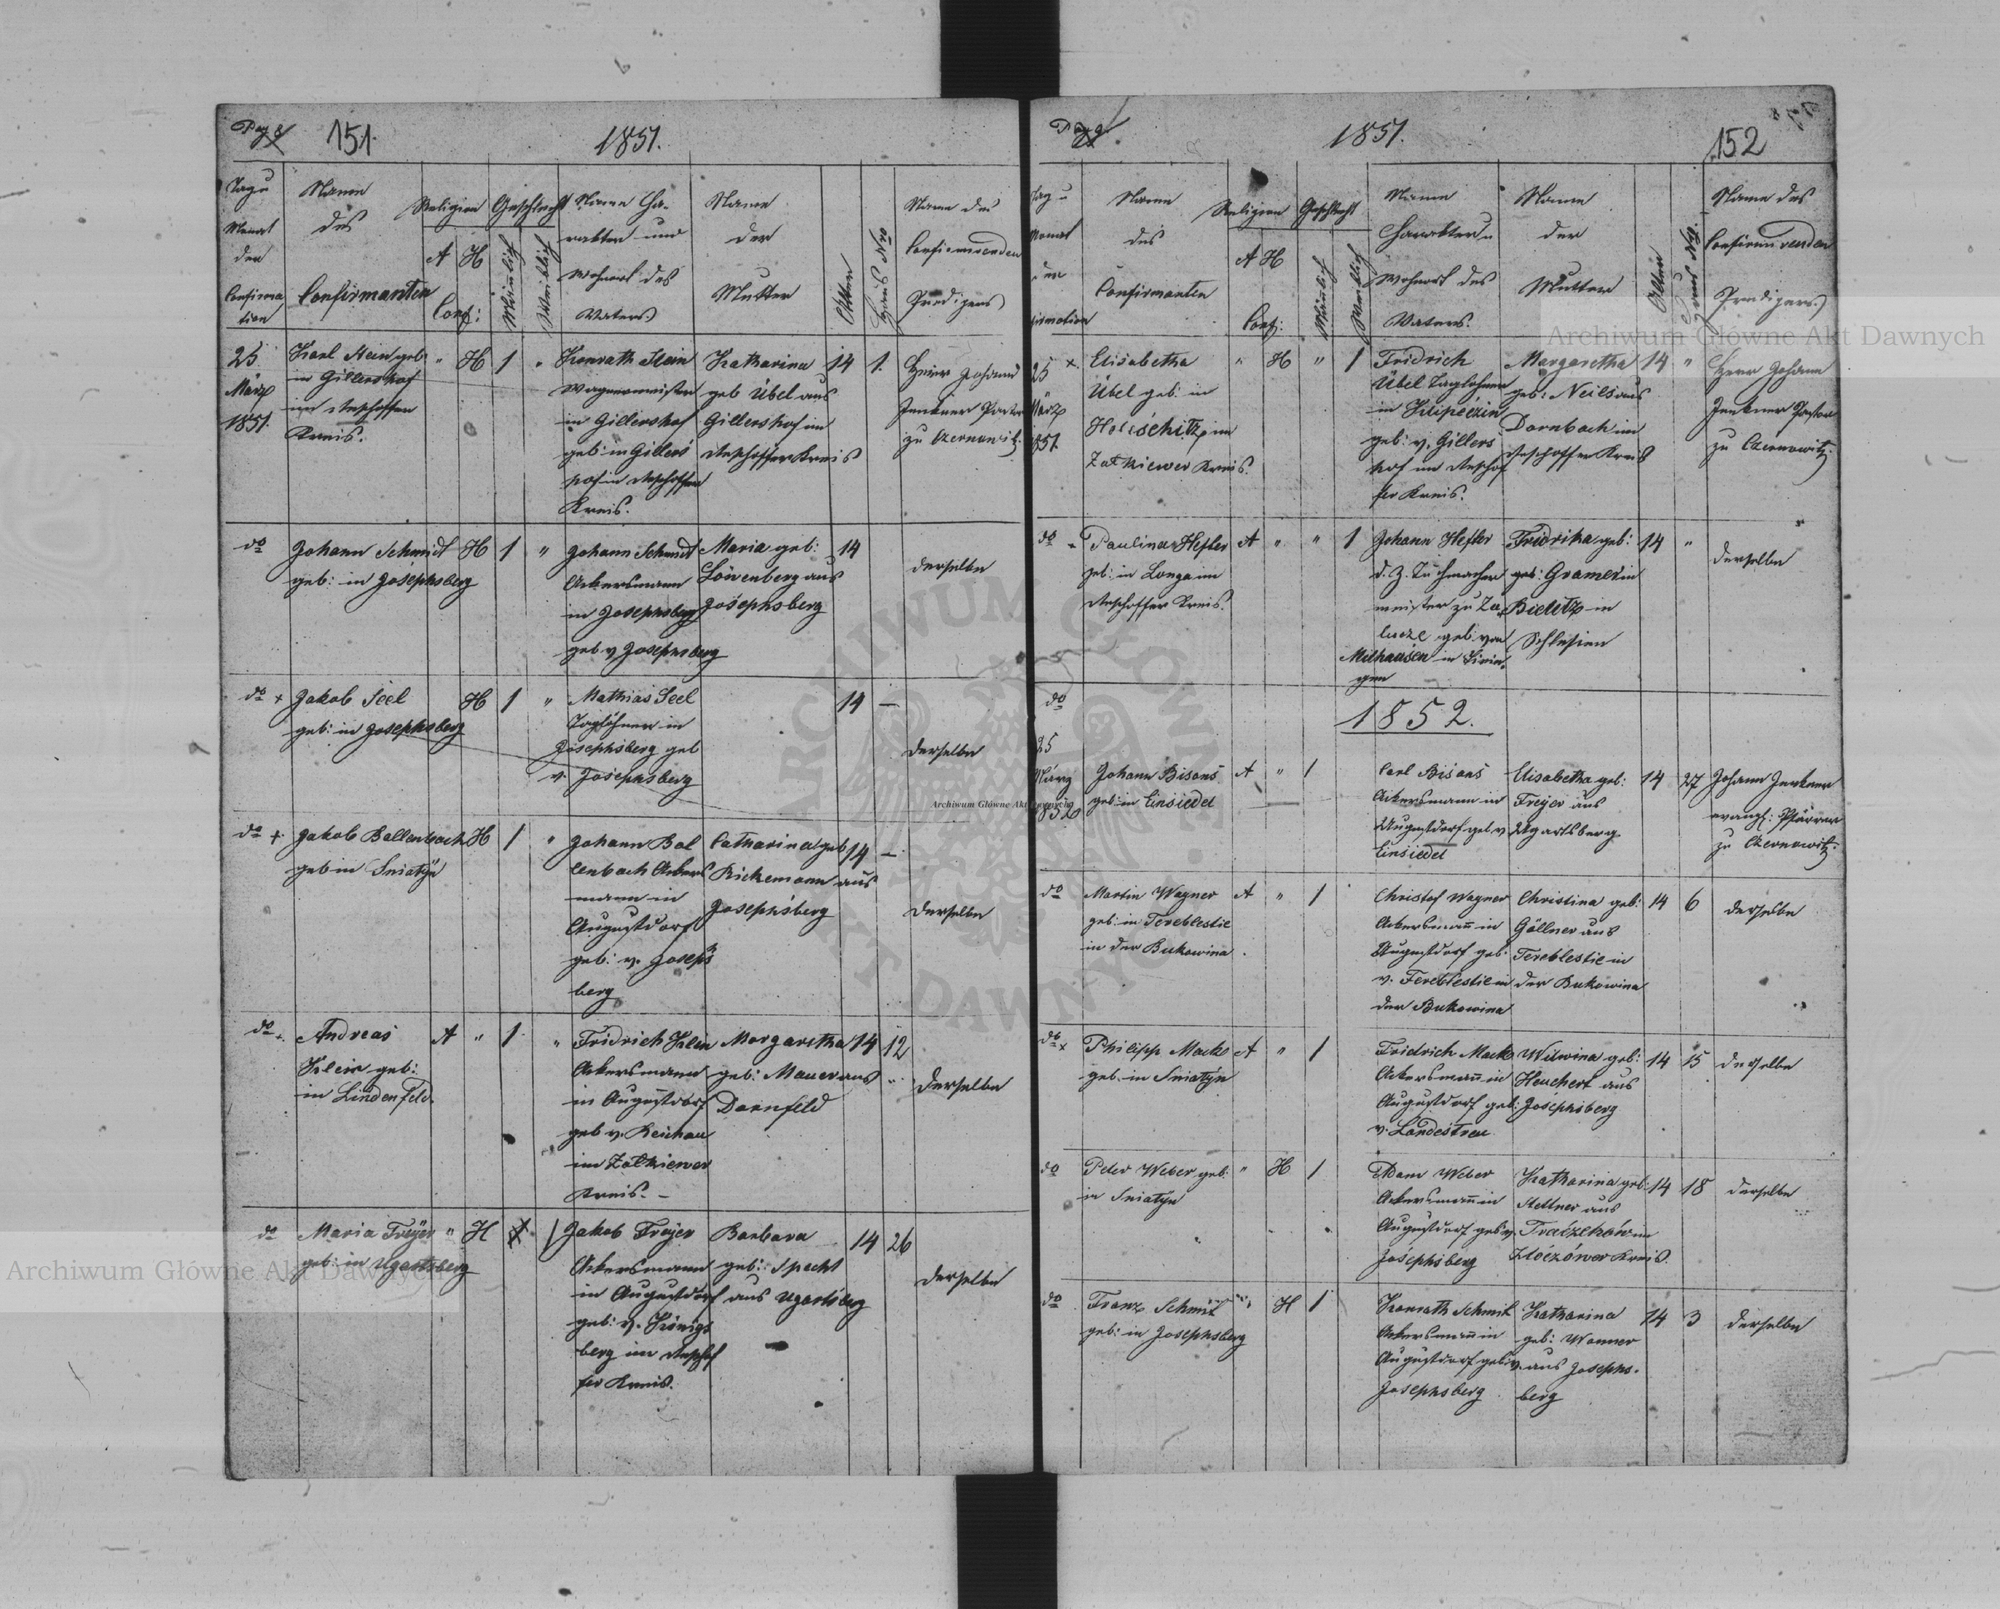 Pag 8 151. 1851.
Tag u Monat der Confirmation
Name des Confirmanten
Religion A H Conf:
Geschlecht Männlich Weiblich
Name Charakter und Wohnort des Vaters
Name der Mutter
Alter
Haus Nro
Name des Confirmirenden Predigers
25 März 1851.
Karl Stein geb:
in Gillershof
im
Kreis.
" H 1 "
Konrath Stein
Wagnermeister
in Gillershof
geb: in Gillers
hof in
Kreis.
Katharina
geb Übel aus
Gillershof im
Kreis
14 1.
Herr Johann
Jenkner Pastor
zu Czernowitz.
do
Johann Schmidt
geb: in Josephsberg
H 1 "
Johann Schmidt
Ackersmann
in Josephsberg
geb v Josephsberg
Maria geb:
Löwenberg aus
Josephsberg
14
derselbe
do +
Jakob Seel
geb: in Josephsberg
H 1 "
Mathias Seel
Taglöhner in
Josephsberg geb
v. Josephsberg
14 —
derselbe
do +
Jakob Bollenbach
geb in Sniatyn
H 1 "
Johann Bol
lenbach Ackers
mann in
Augustdorf
geb: v. Josephs
berg
Catharina geb
Rickemann aus
Josephsberg
14 —
derselbe
do +
Andreas
Klein geb:
in Lindenfeld.
A " 1 "
Fridrich Klein
Ackersmann
in Augustdorf
geb v. Reichau
im Zolkiewer
Kreis. –
Margaretha
geb: Mauer aus
Dornfeld
14 12
derselbe
do
Maria Freyer
geb: in Ugartsberg
" H 1
Jakob Freyer
Ackersmann
in Augustdorf
geb: v. Königs
berg im
Kreis.
Barbara
geb: Specht
aus Ugartsberg
14 26
derselbe
Pag 9 1851. 152
Tag u Monat der
Name des Confirmanten
Religion A H Conf:
Geschlecht Männlich Weiblich
Name Charakter u Wohnort des Vaters.
Name der Mutter
Alter
Haus Nro.
Name des Confirmirenden Predigers.
25 März 1851. ×
Elisabetha
Übel geb: in
im
Zolkiewer Kreis.
" H " 1
Fridrich
Übel Taglöhner
in
geb: v. Gillers
hof im
Kreis.
Margaretha
geb: aus
Dornbach im
Kreis
14 "
Herr Johann
Jenkner Pastor
zu Czernowitz.
do
Paulina Hefler
geb: in im
Kreis.
A " " 1
Johann Hefler
d. Z. Tuchmacher
meister zu
geb: von
in
Fridrika geb:
in
Bielitz in
Schlesien
14 "
derselbe
do
1852.
25 März 1852
Johann Bisans
geb: in Einsiedel
A " 1
Carl Bisans
Ackersmann in
Augustdorf geb v
Einsiedel
Elisabetha geb:
Freyer aus
Ugartsberg.
14 27
Johann Jenkner
evangl: Pfarrer
zu Czernowitz.
do
Martin Wagner
geb: in Tereblestie
in der Bukowina
A " 1
Christof Wagner
Ackersmann in
Augustdorf geb
v. Tereblestie in
der Bukowina
Christina geb:
Göllner aus
Tereblestie in
der Bukowina
14 6
derselbe
do ×
Philipp Macks
geb. in Sniatyn
A " 1
Fridrich Macks
Ackersmann in
Augustdorf geb:
v. Landestreu
geb:
Heuchert aus
Josephsberg
14 15
derselbe
do
Peter Weber geb:
in Sniatyn
" H 1
Adam Weber
Ackersmann in
Augustdorf geb v.
Josephsberg
Katharina geb:
Stettner aus
im
Złoczówer Kreis.
14 18
derselbe
do
Franz Schmit
geb: in Josephsberg
" H 1
Konrath Schmit
Ackersmann in
Augustdorf geb: v.
Josephsberg
Katharina
geb: Wanner
aus Josephs.
berg
14 3
derselbe
Archiwum Główne Akt Dawnych
Archiwum Główne Akt Dawnych
Archiwum Główne Akt Dawnych
ARCHIWUM GŁÓWNE AKT DAWNYCH